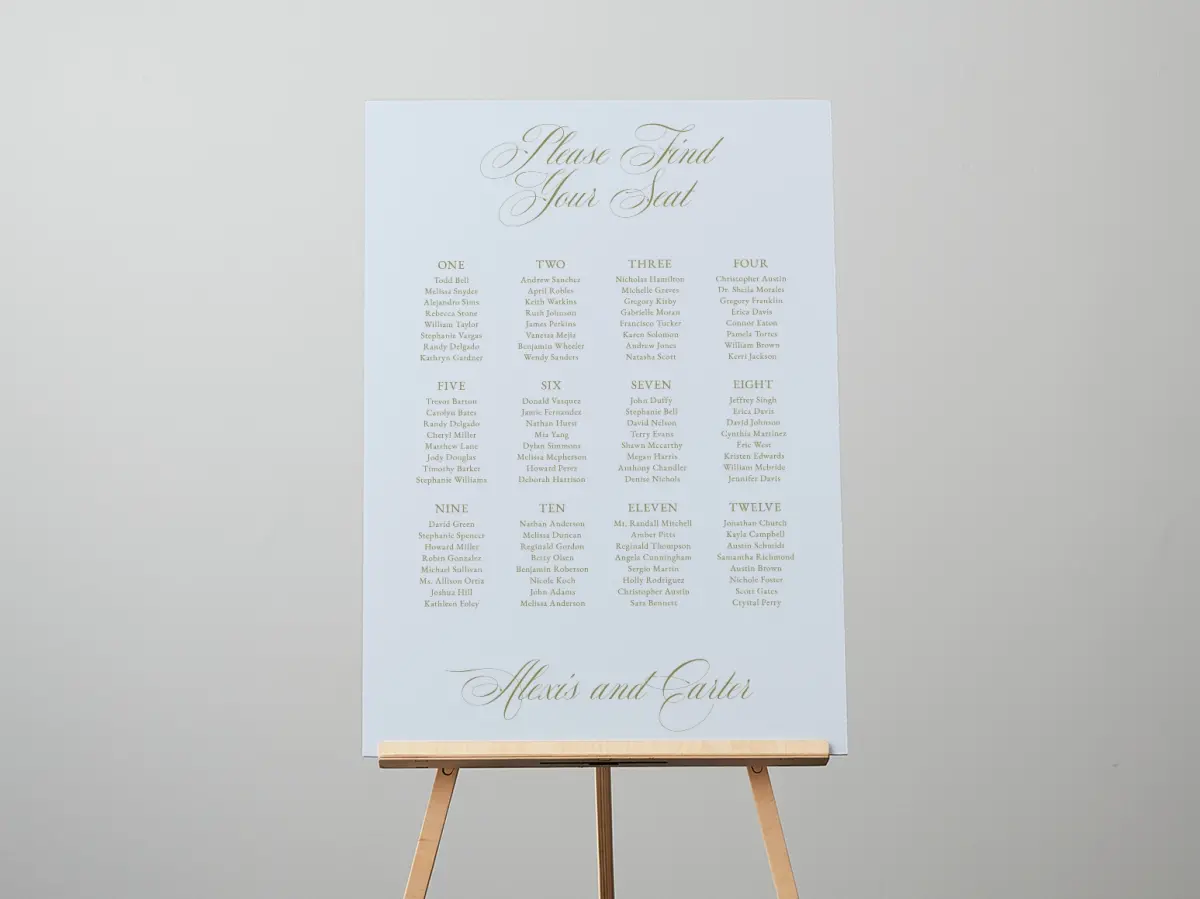 Please Find
Your Seat
ONE
Todd Bell
Melissa Snyder
Alejandro Sims
Rebecca Stone
William Taylor
Stephanie Vargas
Randy Delgado
Kathryn Gardner
TWO
Andrew Sanchez
April Robles
Keith Watkins
Ruth Johnson
James Perkins
Vanessa Mejia
Benjamin Wheeler
Wendy Sanders
THREE
Nicholas Hamilton
Michelle Graves
Gregory Kirby
Gabrielle Moran
Francisco Tucker
Karen Solomon
Andrew Jones
Natasha Scott
FOUR
Christopher Austin
Dr. Sheila Morales
Gregory Franklin
Erica Davis
Connor Eaton
Pamela Torres
William Brown
Kerri Jackson
FIVE
Trevor Barron
Carolyn Bates
Randy Delgado
Cheryl Miller
Matthew Lane
Jody Douglas
Timothy Barker
Stephanie Williams
SIX
Donald Vasquez
Jamie Fernandez
Nathan Hurst
Mia Yang
Dylan Simmons
Melissa Mcpherson
Howard Perez
Deborah Harrison
SEVEN
John Duffy
Stephanie Bell
David Nelson
Terry Evans
Shawn Mccarthy
Megan Harris
Anthony Chandler
Denise Nichols
EIGHT
Jeffrey Singh
Erica Davis
David Johnson
Cynthia Martinez
Eric West
Kristen Edwards
William Mcbride
Jennifer Davis
NINE
David Green
Stephanie Spencer
Howard Miller
Robin Gonzalez
Michael Sullivan
Ms. Allison Ortiz
Joshua Hill
Kathleen Foley
TEN
Nathan Anderson
Melissa Duncan
Reginald Gordon
Betty Olsen
Benjamin Roberson
Nicole Koch
John Adams
Melissa Anderson
ELEVEN
Mr. Randall Mitchell
Amber Pitts
Reginald Thompson
Angela Cunningham
Sergio Martin
Holly Rodriguez
Christopher Austin
Sara Bennett
TWELVE
Jonathan Church
Kayla Campbell
Austin Schmidt
Samantha Richmond
Austin Brown
Nichole Foster
Scott Gates
Crystal Perry
Alexis and Carter